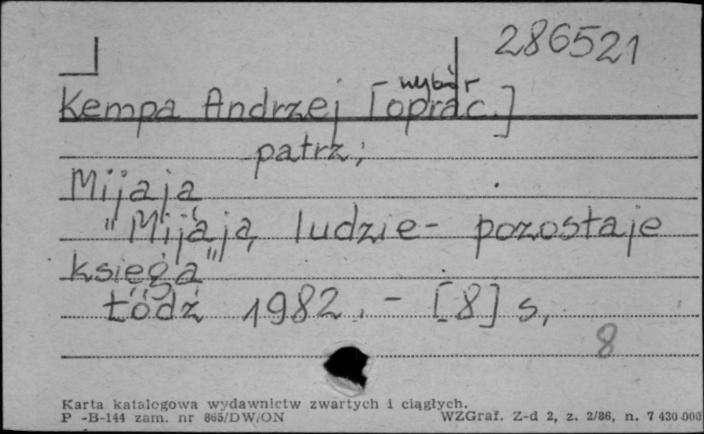 286521
wybór
Kempa Andrzej [oprac.]
patrz;
Mijają
"Mijają ludzie - pozostaje
księga"
Łódź 1982. - [8] s,
8
Karta katalogowa wydawnictw zwartych i ciągłych.
P -B-144 zam. nr 865/DW/ON WZGraf. Z-d 2, z. 2/86, n. 7 430 000